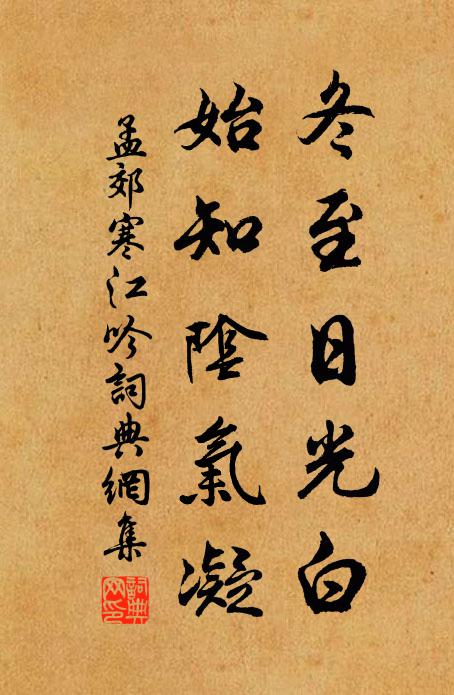 冬至日光白
始知陰氣凝
孟郊寒江吟詞典網集
詞典
網印